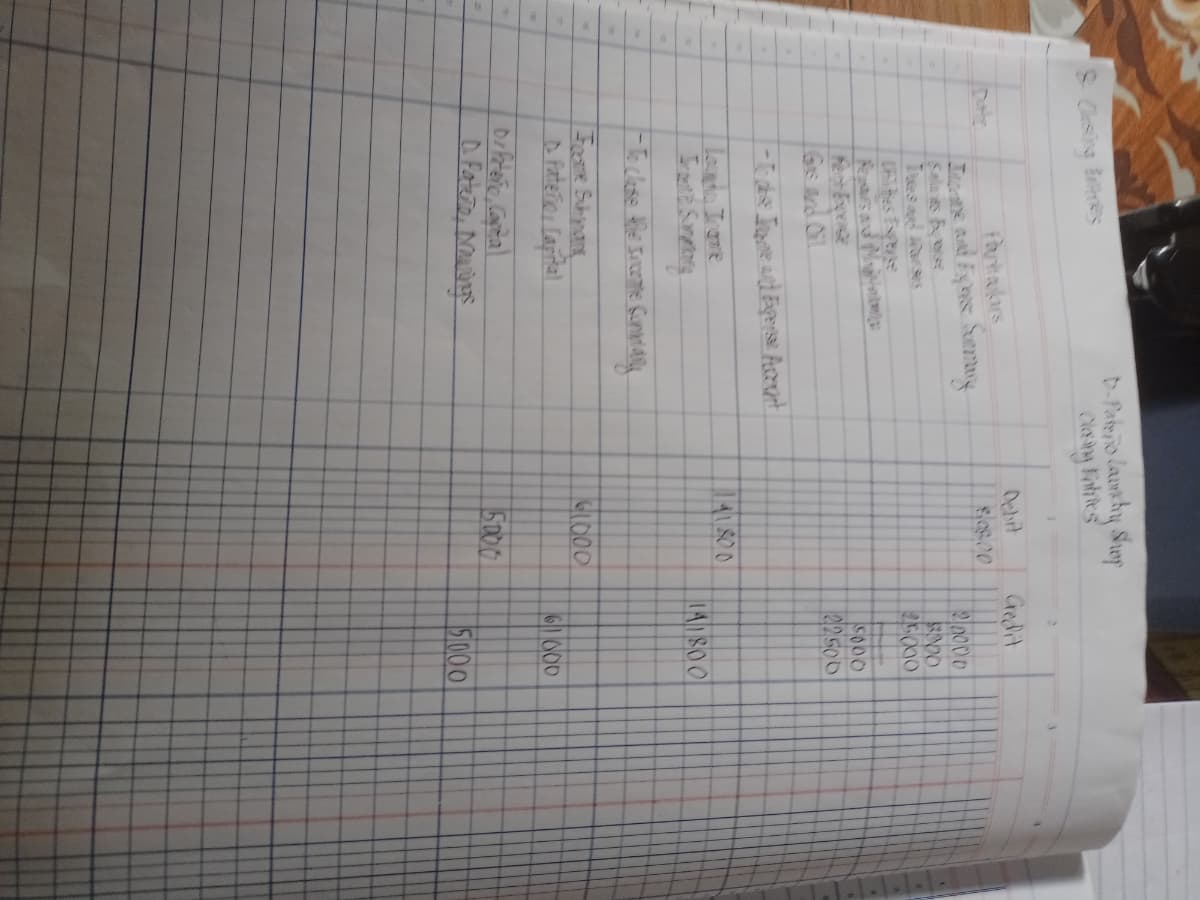 8. Closing Entries
D. Pateño Laundry Shop
Closing Entries
1 2 3 4
Date Particulars Debit Credit
Income and Expense Summary
Salaries Expense 20000
Taxes and
Utilities Expense 25000
Repairs and
Rent Expense 5000
Gas and Oil 22500
- To close Income and Expense Account
Laundry Income 141800
Income Summary 141800
- To close the Income Summary
Income Summary 61000
D. Pateño, Capital 61000
D. Pateño, Capital 5000
D. Pateño, Drawings 5000